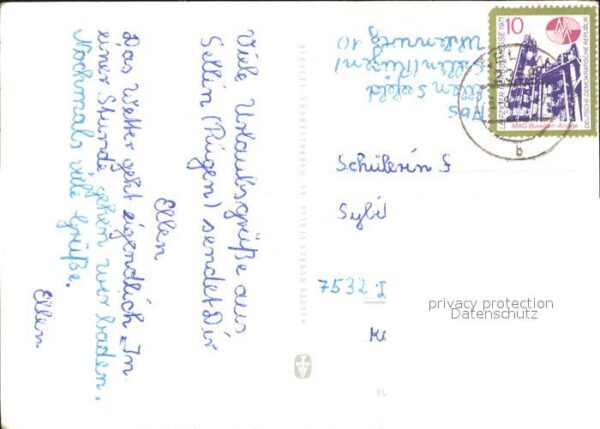 Viele Urlaubsgrüße aus
Sellin (Rügen) sendet Dir
Ellen
Das Wetter geht eigendlich. In
einer Stunde gehen wir baden.
Nochmals viele Grüße.
Ellen
WALTER WERNER VERLAG KG MARKKLEEBERG - LEIPZIG
Abs
Ellen
Sellin (Rügen)
10
10
LEIPZIGER MESSE 1971
DEUTSCHE DEMOKRATISCHE REPUBLIK
MAG-Butadien-Anlage
b
Schülerin
Sybil
7532
privacy protection
Datenschutz